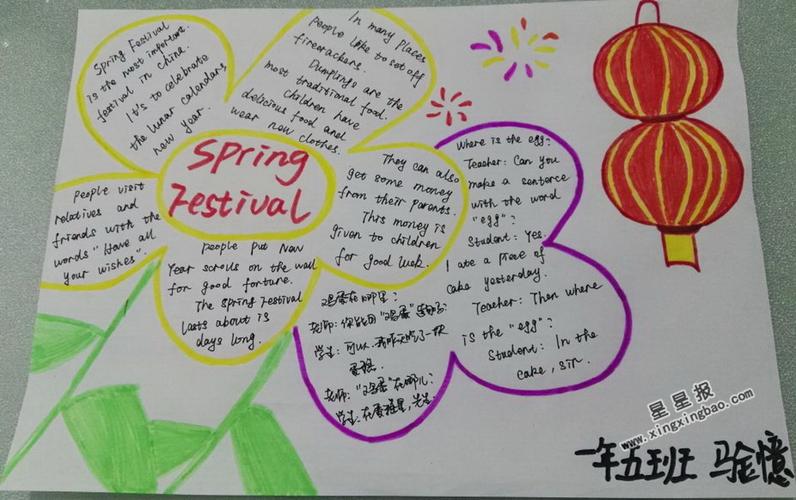 Spring Festival
Spring Festival
is the most important
festival in China.
It's to celebrate
the lunar calendars
new year.
In many places
people like to set off
firecrackers.
Dumplings are the
most traditional food.
Children have
delicious food and
wear new clothes.
They can also
get some money
from their parents.
This money is
given to children
for good luck.
People put New
Year scrolls on the wall
for good fortune.
The Spring Festival
lasts about is
days long.
People visit
relatives and
friends with the
words "Have all
your wishes".
Where is the egg?
Teacher: Can you
make a sentence
with the word
"egg"?
Student: Yes.
I ate a piece of
cake yesterday.
Teacher: Then where
is the "egg"?
Student: In the
cake, sir.
鸡蛋在哪里?
老师:你能用"鸡蛋"造句吗?
学生:可以,我昨天吃了一块
蛋糕.
老师:"鸡蛋"在哪儿?
学生:在蛋糕里,先生.
星星报
www.xingxingbao.com
一年五班